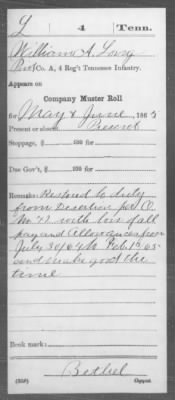 L 4 Tenn.
William A. Long
Pvt, Co. A, 4 Reg't Tennessee Infantry.
Appears on
Company Muster Roll
for May & June, 1865
Present or absent Present
Stoppage, $ 100 for
Due Gov't, $ 100 for
Remarks: Restord to duty
from Desertion per
with loss of all
pay and Allowances from
July 30/64 to Feb. 1st 65
and make good the
time
Book mark:
Bethel
(358) Copyist.